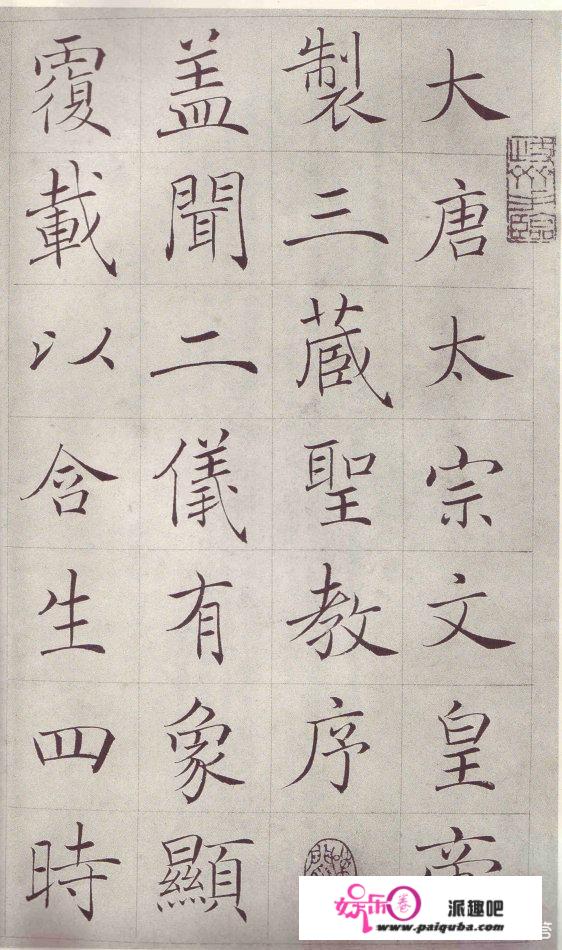 大唐太宗文皇帝
製三蔵聖教序
盖聞二儀有象顯
覆載以含生四時
娱乐卷 派趣吧
www.paiquba.com